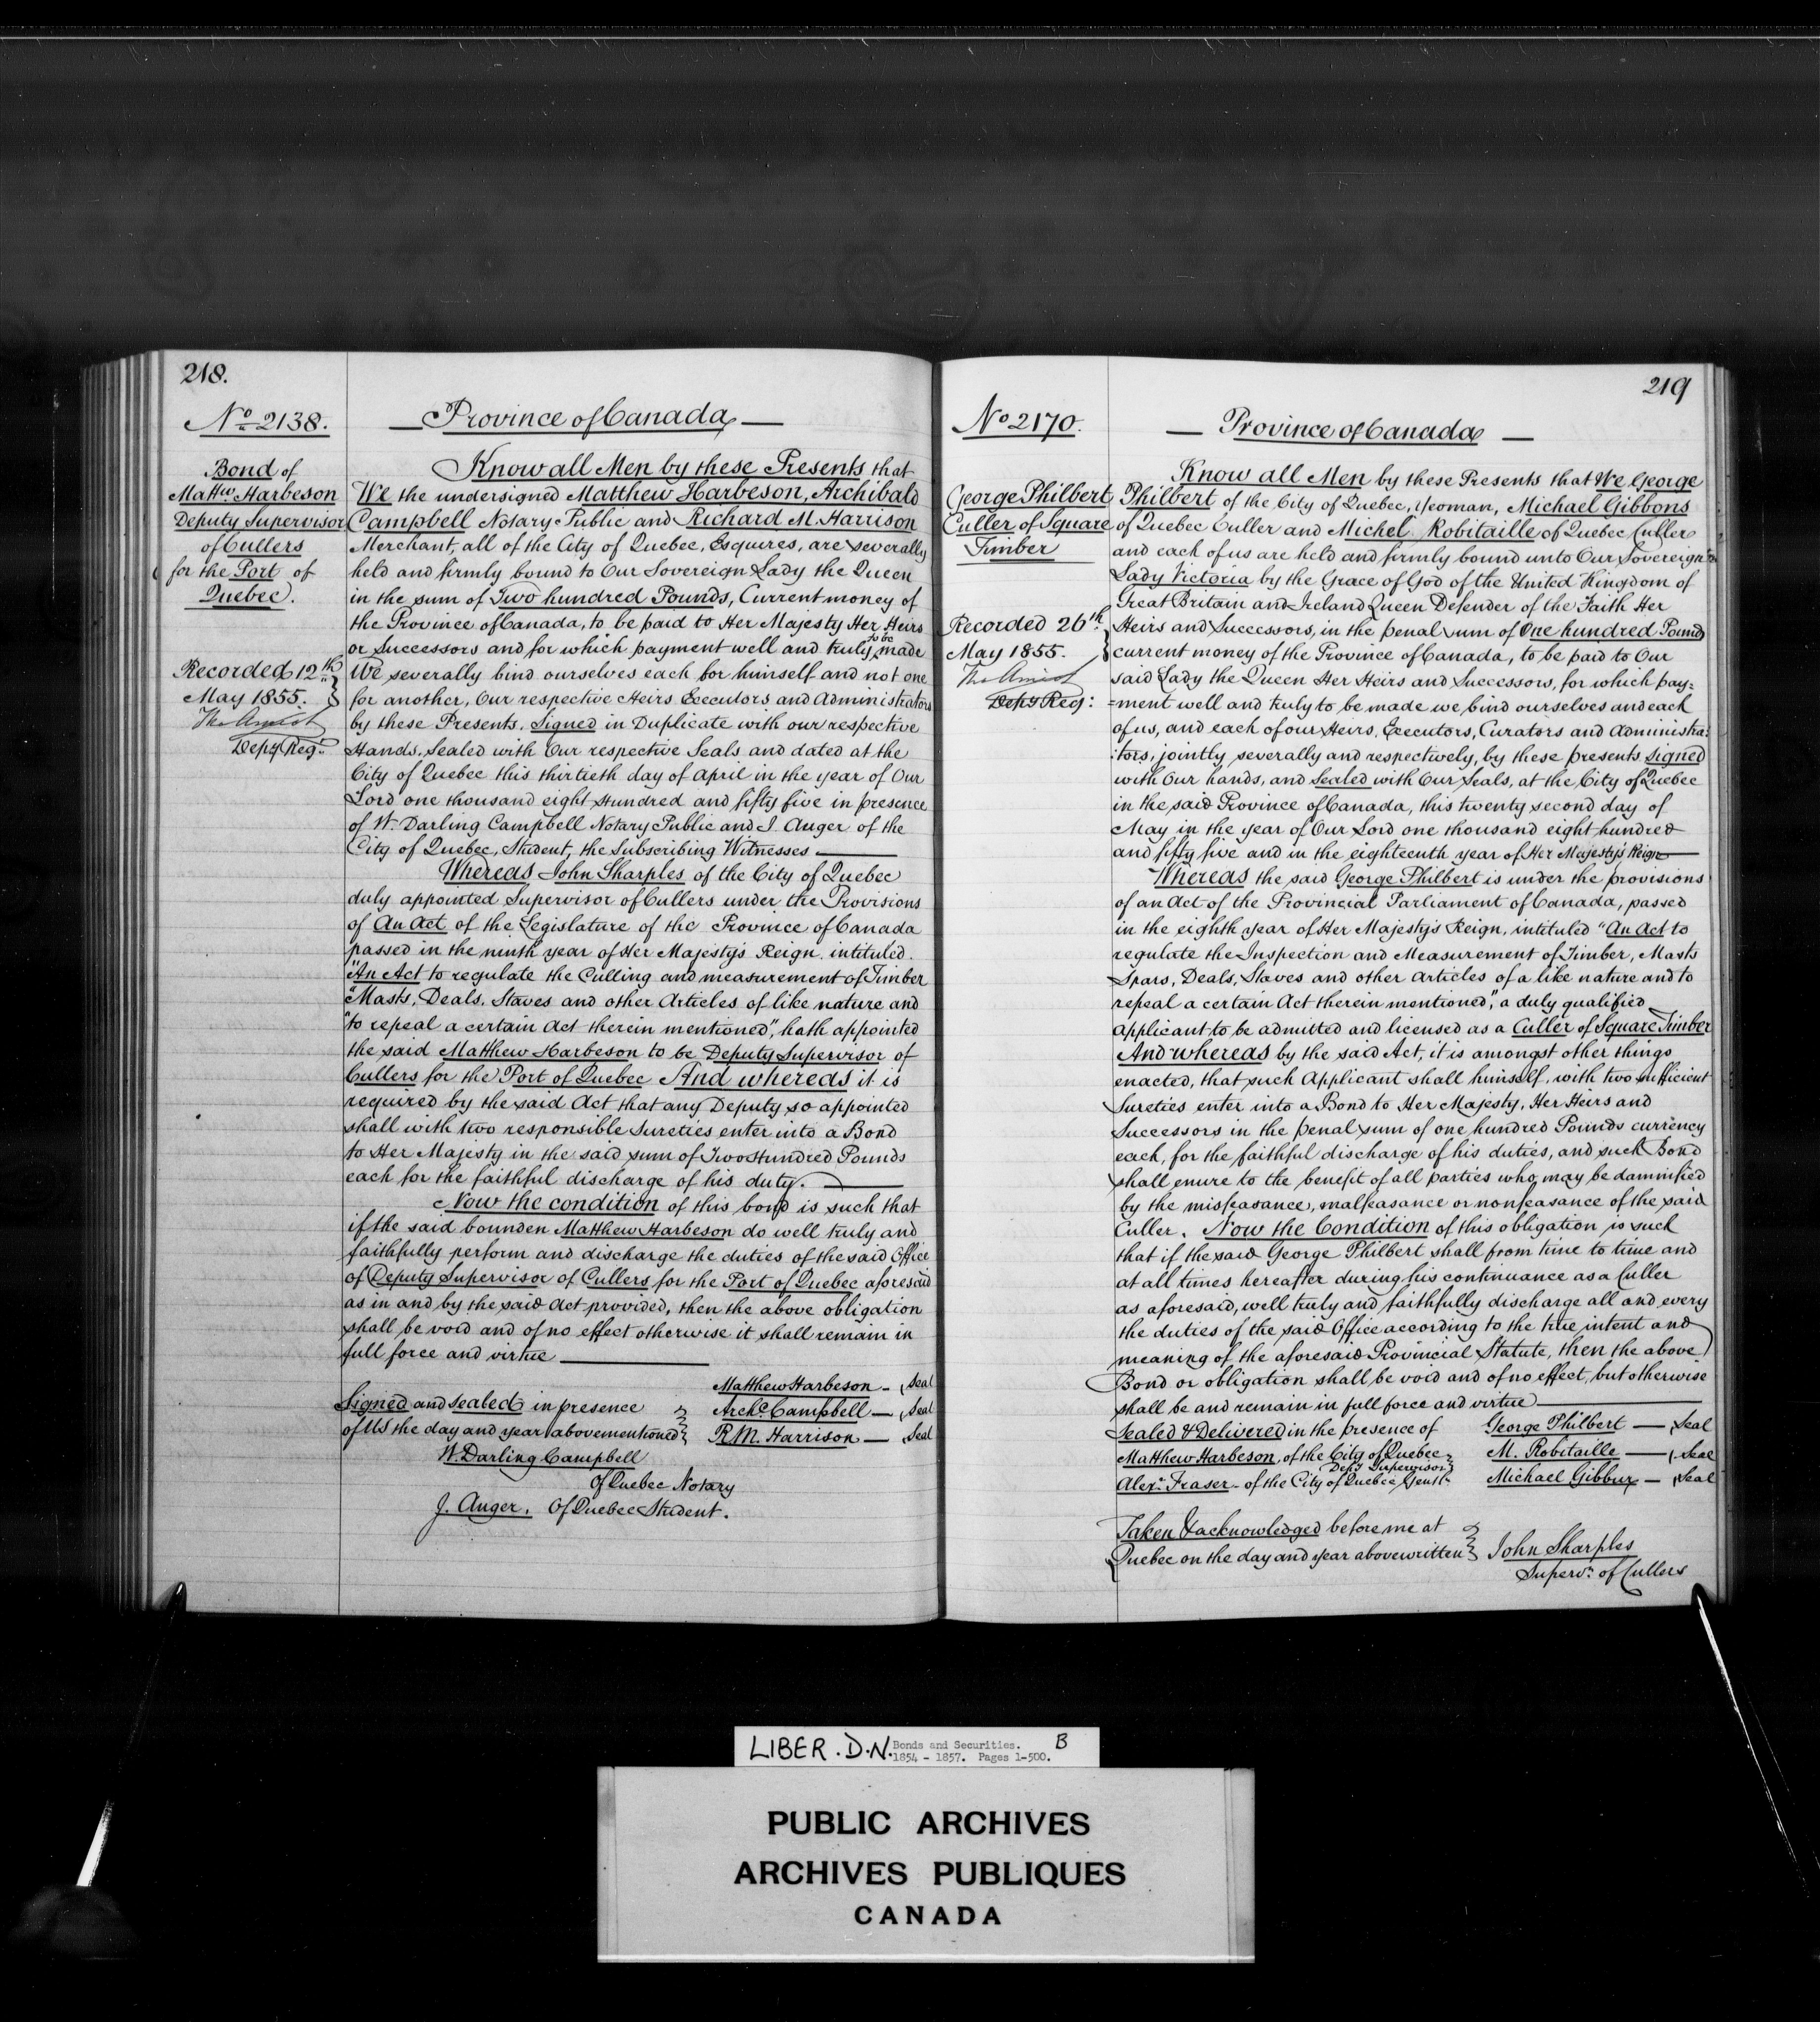 218.
No 2138.
Province of Canada
Bond of
Mattw. Harbeson
Deputy Supervisor
of Cullers
for the Port of
Quebec.
Recorded 12th
May 1855.
Depy Reg.
Know all Men by these Presents that
We the undersigned Matthew Harbeson, Archibald
Campbell Notary Public and Richard M. Harrison
Merchant, all of the City of Quebec, Esquires, are severally
held and firmly bound to Our Sovereign Lady the Queen
in the sum of Two hundred Pounds, Current money of
the Province of Canada, to be paid to Her Majesty Her Heirs
or Successors and for which payment well and truly to be made
We severally bind ourselves each for himself and not one
for another, Our respective Heirs Executors and Administrators
by these Presents. Signed in Duplicate with our respective
Hands, Sealed with Our respective Seals and dated at the
City of Quebec this thirtieth day of April in the year of Our
Lord one thousand eight Hundred and fifty five in presence
of W. Darling Campbell Notary Public and J. Auger of the
City of Quebec, Student, the Subscribing Witnesses
Whereas John Sharples of the City of Quebec
duly appointed Supervisor of Cullers under the Provisions
of An Act of the Legislature of the Province of Canada
passed in the ninth year of Her Majesty's Reign. intituled.
"An Act to regulate the Culling and measurement of Timber
"Masts, Deals, Staves and other Articles of like nature and
"to repeal a certain Act therein mentioned", hath appointed
the said Matthew Harbeson to be Deputy Supervisor of
Cullers for the Port of Quebec And whereas it is
required by the said Act that any Deputy so appointed
shall with two responsible Sureties enter into a Bond
to Her Majesty in the said sum of Two Hundred Pounds
each for the faithful discharge of his duty.
Now the condition of this bond is such that
if the said bounden Matthew Harbeson do well truly and
faithfully perform and discharge the duties of the said Office
of Deputy Supervisor of Cullers for the Port of Quebec aforesaid
as in and by the said Act provided, then the above obligation
shall be void and of no effect otherwise it shall remain in
full force and virtue
Matthew Harbeson - Seal
Signed and sealed in presence
Archd. Campbell — Seal
of Us the day and year abovementioned
R.M. Harrison — Seal
W. Darling Campbell
Of Quebec Notary
J. Auger. Of Quebec Student.
219
No 2170.
Province of Canada
George Philbert
Culler of Square
Timber
Recorded 26th.
May 1855.
Depy Reg:
Know all Men by these Presents that We George
Philbert of the City of Quebec, Yeoman, Michael Gibbons
of Quebec Culler and Michel Robitaille of Quebec Culler
and each of us are held and firmly bound unto Our Sovereign
Lady Victoria by the Grace of God of the United Kingdom of
Great Britain and Ireland Queen Defender of the Faith Her
Heirs and Successors, in the penal sum of One hundred Pounds
current money of the Province of Canada, to be paid to Our
said Lady the Queen Her Heirs and Successors, for which pay=
=ment well and truly to be made we bind ourselves and each
of us, and each of our Heirs, Executors, Curators and Administra:
:tors, jointly severally and respectively, by these presents signed
with Our hands, and sealed with Our Seals, at the City of Quebec
in the said Province of Canada, this twenty second day of
May in the year of Our Lord one thousand eight hundred
and fifty five and in the eighteenth year of Her Majesty's Reign
Whereas the said George Philbert is under the provisions
of an Act of the Provincial Parliament of Canada, passed
in the eighth year of Her Majesty's Reign, intituled "An Act to
regulate the Inspection and Measurement of Timber, Masts
Spars, Deals, Staves and other Articles of a like nature and to
repeal a certain Act therein mentioned", a duly qualified
Applicant to be admitted and licensed as a Culler of Square Timber
And whereas by the said Act, it is amongst other things
enacted, that such Applicant shall himself, with two sufficient
Sureties enter into a Bond to Her Majesty, Her Heirs and
Successors in the penal sum of one hundred Pounds currency
each, for the faithful discharge of his duties, and such Bond
shall enure to the benefit of all parties who may be damnified
by the misfeasance, malfeasance or nonfeasance of the said
Culler. Now the Condition of this obligation is such
that if the said George Philbert shall from time to time and
at all times hereafter during his continuance as a Culler
as aforesaid, well truly and faithfully discharge all and every
the duties of the said Office according to the true intent and
meaning of the aforesaid Provincial Statute, then the above
Bond or obligation shall be void and of no effect, but otherwise
shall be and remain in full force and virtue
Sealed & Delivered in the presence of
George Philbert — Seal
Matthew Harbeson, of the City of Quebec
Depy Supervisor
M. Robitaille — Seal
Alexr. Fraser - of the City of Quebec Gentl.
Michael Gibbux — Seal
Taken & acknowledged before me at
Quebec on the day and year abovewritten
John Sharples
Supervr. of Cullers
LIBER . D.N. Bonds and Securities. B
1854 - 1857. Pages 1-500.
PUBLIC ARCHIVES
ARCHIVES PUBLIQUES
CANADA